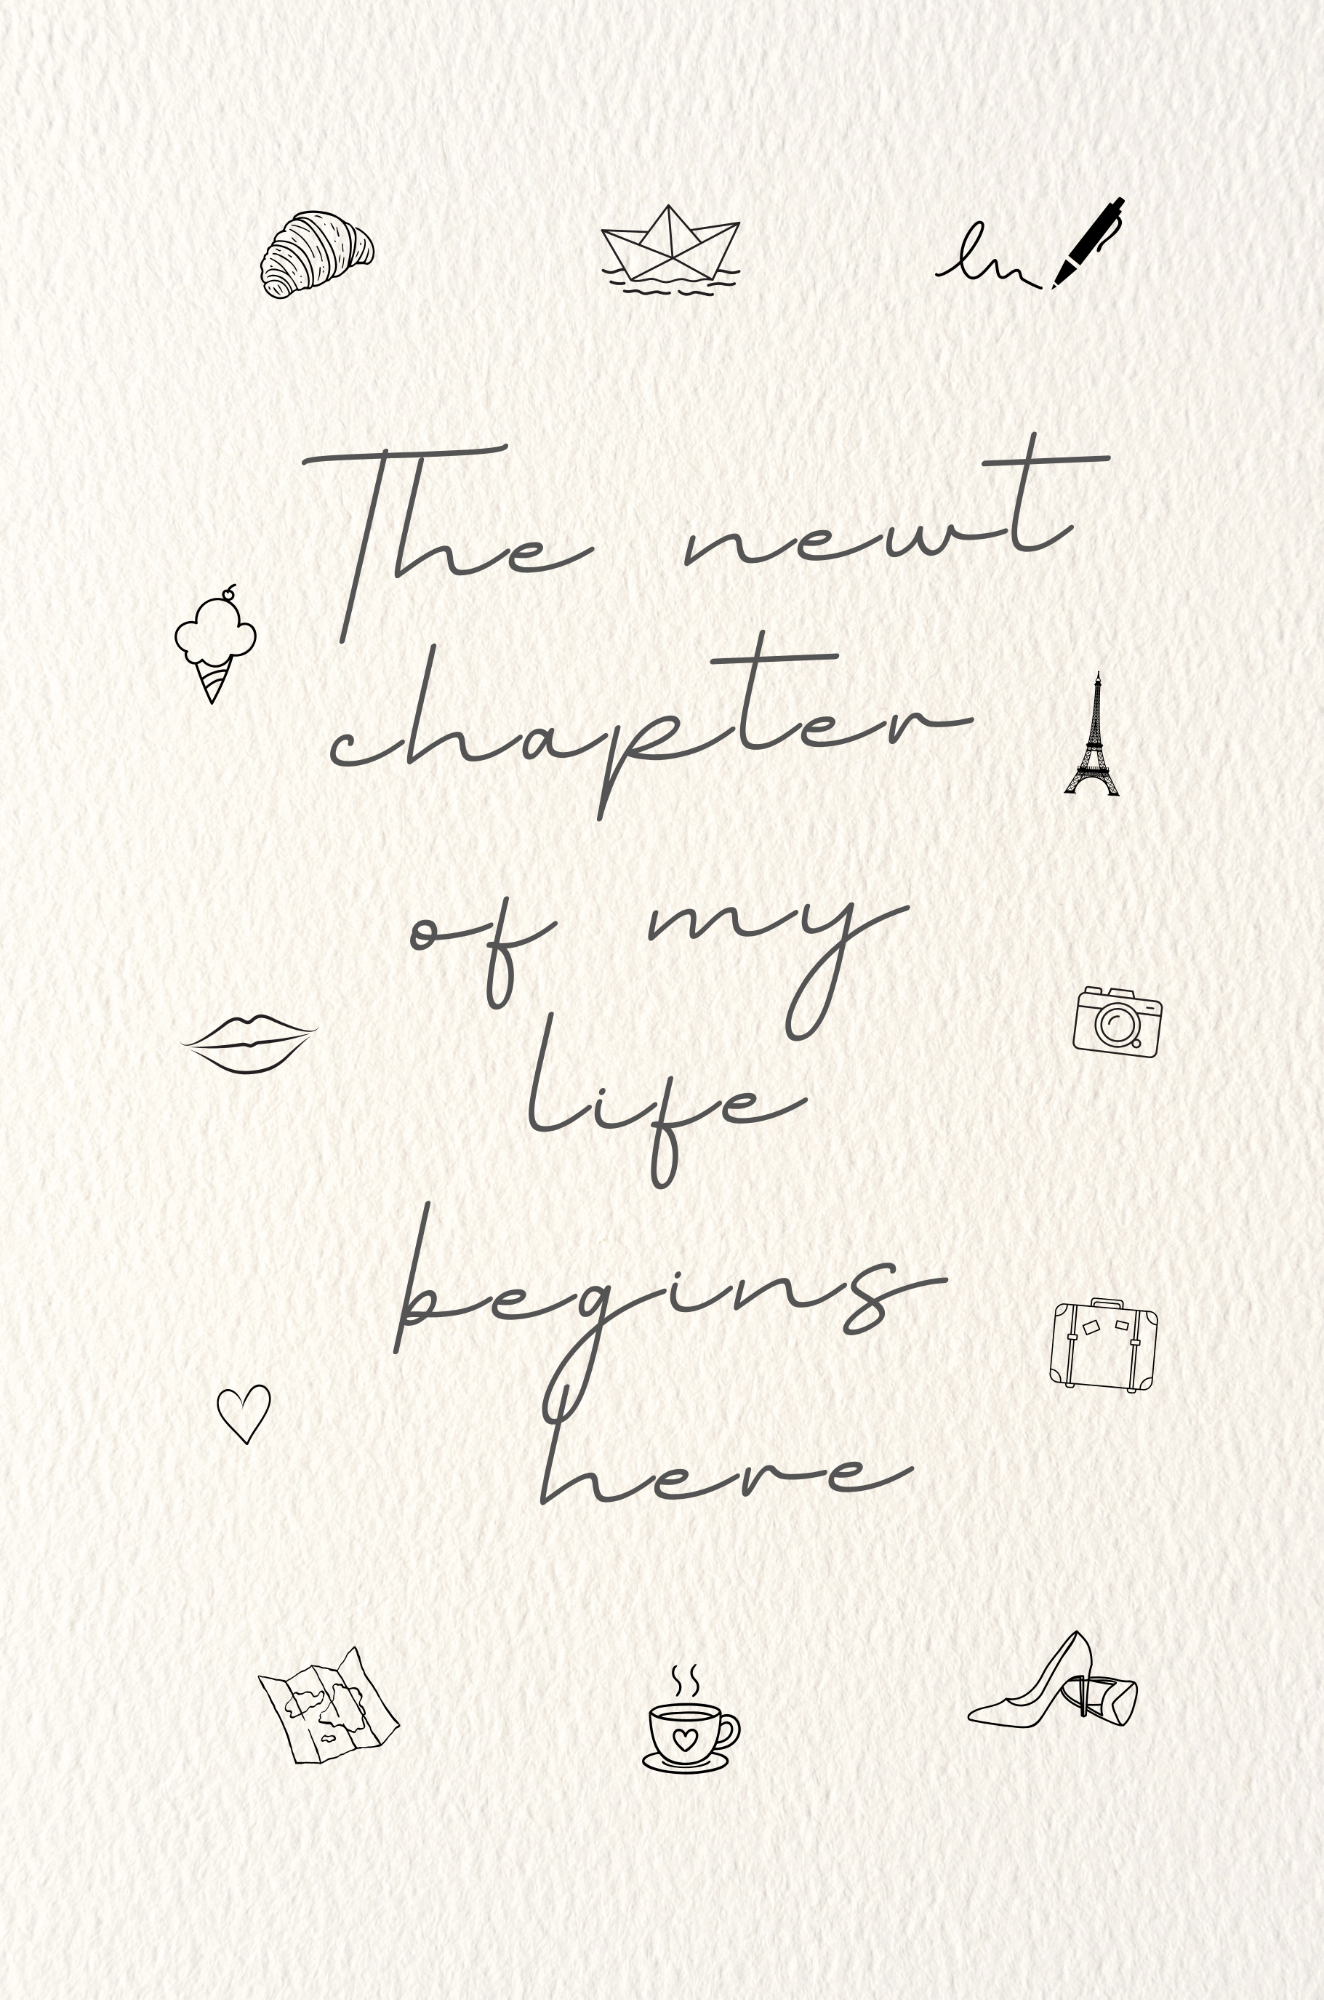 The newt
chapter
of my
life
begins
here